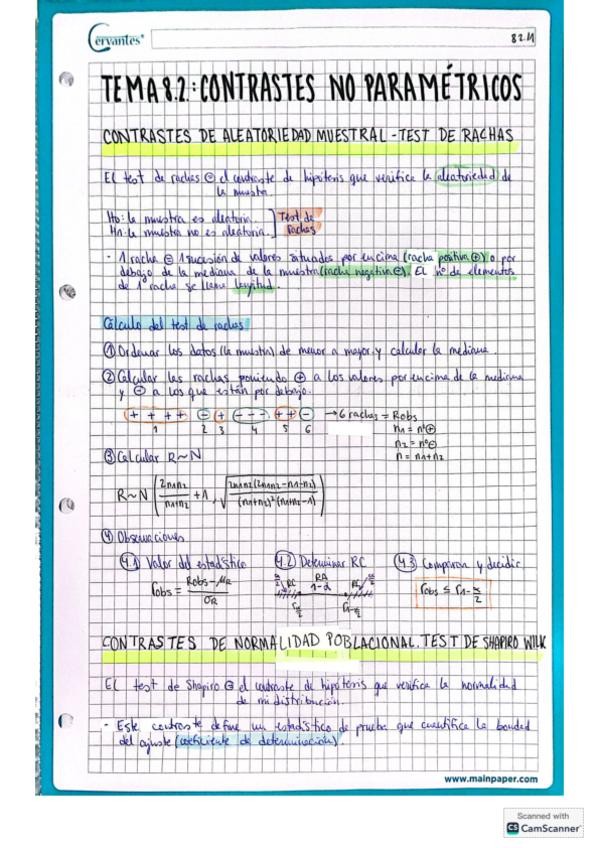 Cervantes
82.M
TEMA 8.2.: CONTRASTES NO PARAMÉTRICOS
CONTRASTES DE ALEATORIEDAD MUESTRAL - TEST DE RACHAS
El test de rachas ⊜ el contraste de hipótesis que verifica la aleatoriedad de
la muestra.
H0: la muestra es aleatoria.
H1: la muestra no es aleatoria.
Test de
Rachas
- 1 racha ⊜ 1 sucesión de valores situados por encima (racha positiva ⊕) o por
debajo de la mediana de la muestra (racha negativa ⊖). El nº de elementos
de 1 racha se llama longitud.
Cálculo del test de rachas
① Ordenar los datos (la muestra) de menor a mayor y calcular la mediana.
② Calcular las rachas poniendo ⊕ a los valores por encima de la mediana
y ⊖ a los que están por debajo.
(+ + + +) (-) (+) (- - -) (+ +) (-) → 6 rachas = Robs
1 2 3 4 5 6
n1 = nº⊕
n2 = nº⊖
n = n1+n2
③ Calcular R~N
R~N ( 2n1n2 / (n1+n2) + 1, √( 2n1n2(2n1n2-n1-n2) / (n1+n2)²(n1+n2-1) ) )
④ Observaciones
4.1 Valor del estadístico
robs = (Robs - μR) / σR
4.2 Determinar RC
α/2 RC RA 1-α RC α/2
r α/2 r 1-α/2
4.3 Comparar y decidir
robs ≤ r 1-α/2
CONTRASTES DE NORMALIDAD POBLACIONAL. TEST DE SHAPIRO WILK
El test de Shapiro ⊜ el contraste de hipótesis que verifica la normalidad
de mi distribución.
- Este contraste define un estadístico de prueba que cuantifica la bondad
del ajuste (coeficiente de determinación).
www.mainpaper.com
Scanned with
CS CamScanner